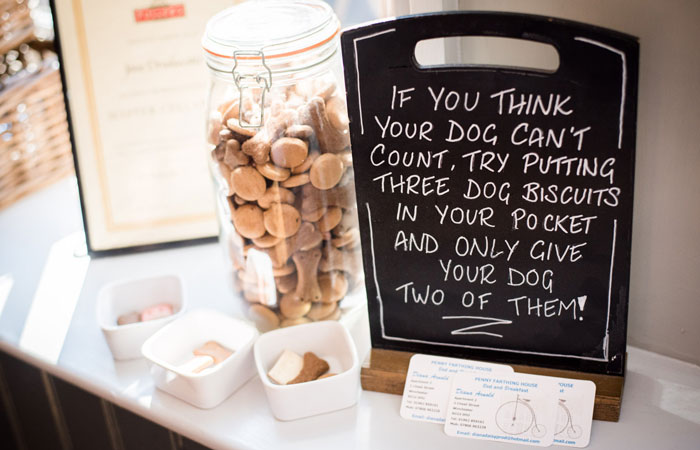 IF YOU THINK
YOUR DOG CAN'T
COUNT, TRY PUTTING
THREE DOG BISCUITS
IN YOUR POCKET
AND ONLY GIVE
YOUR DOG
TWO OF THEM!
PENNY FARTHING HOUSE
Bed and Breakfast
Diana Arnold
PENNY FARTHING HOUSE
Bed and Breakfast
Diana Arnold
Winchester